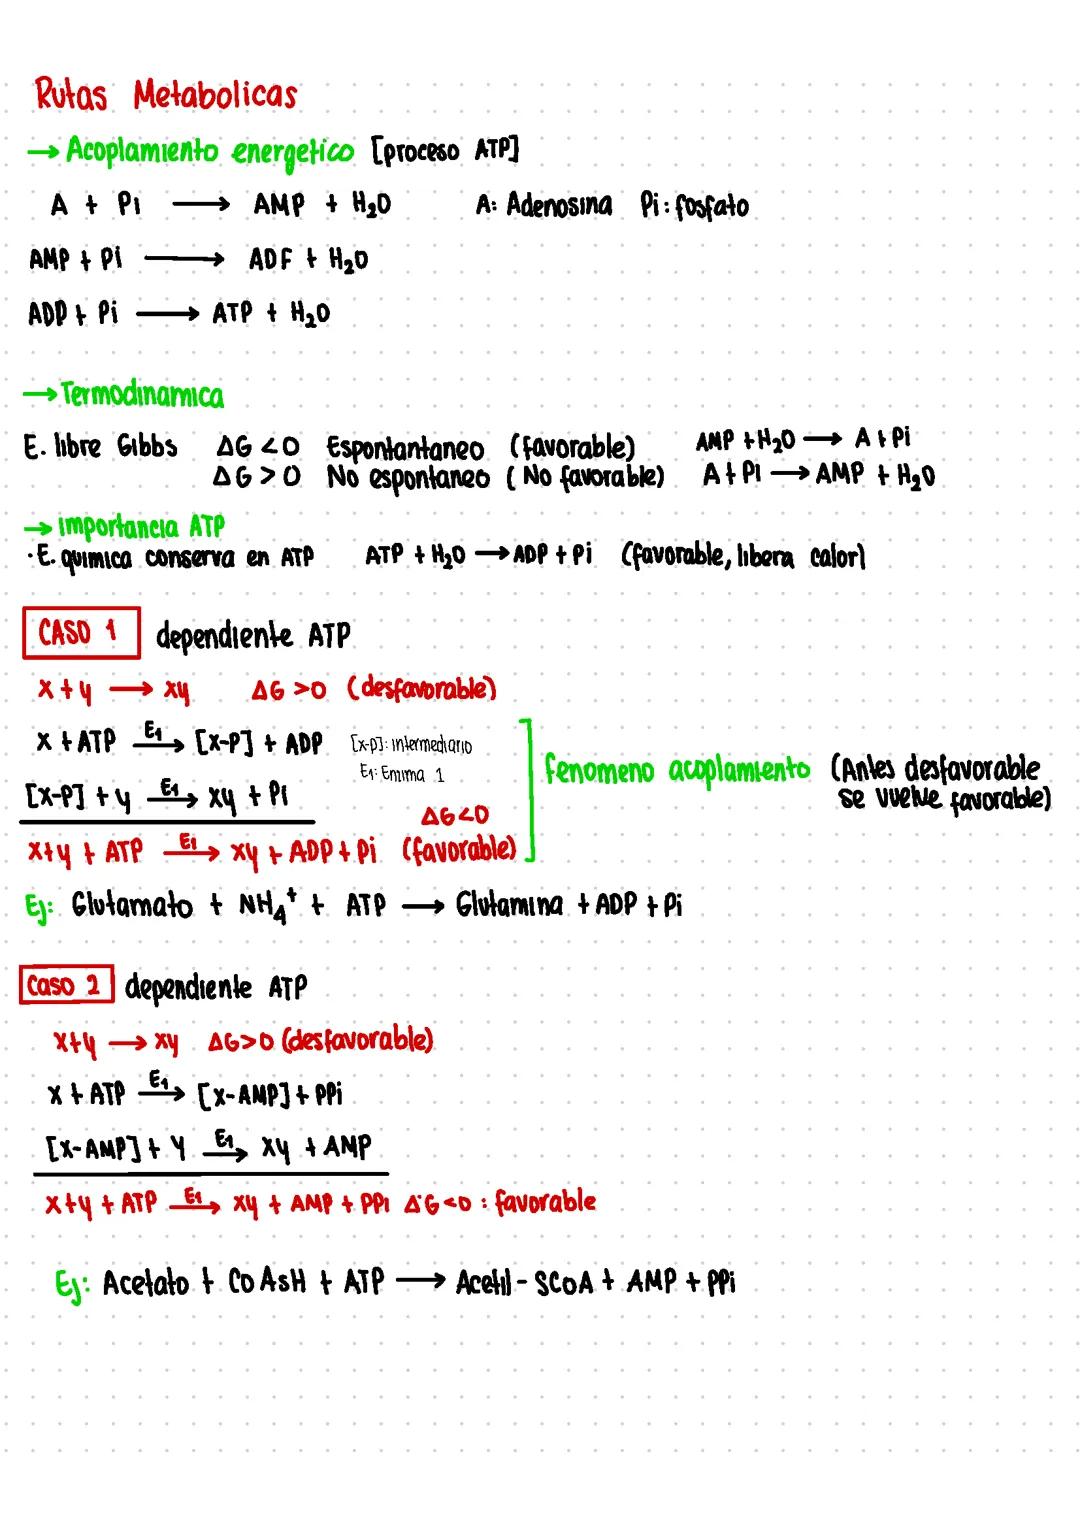 Rutas Metabolicas
→ Acoplamiento energetico [proceso ATP]
A + Pi ⟶ AMP + H₂O A: Adenosina Pi: fosfato
AMP + Pi ⟶ ADF + H₂O
ADP + Pi ⟶ ATP + H₂O
→ Termodinamica
E. libre Gibbs ΔG <0 Espontantaneo (favorable) AMP + H₂O ⟶ A + Pi
ΔG >0 No espontaneo (No favorable) A + Pi ⟶ AMP + H₂O
→ importancia ATP
· E. quimica conserva en ATP ATP + H₂O ⟶ ADP + Pi (favorable, libera calor)
CASO 1 dependiente ATP
x + y ⟶ xy ΔG >0 (desfavorable)
X + ATP —E₁→ [X-P] + ADP [X-P]: intermediario
E₁: Enzima 1
fenomeno acoplamiento (Antes desfavorable
se vuelve favorable)
[X-P] + y —E₁→ xy + Pi
ΔG<0
X+y + ATP —E₁→ xy + ADP + Pi (favorable)
Ej: Glutamato + NH₄⁺ + ATP ⟶ Glutamina + ADP + Pi
Caso 2 dependiente ATP
x+y ⟶ xy ΔG>0 (desfavorable)
X + ATP —E₁→ [X-AMP] + PPi
[X-AMP] + Y —E₁→ xy + AMP
X+y + ATP —E₁→ xy + AMP + PPi ΔG<0 : favorable
Ej: Acetato + CoAsH + ATP ⟶ Acetil - SCoA + AMP + PPi